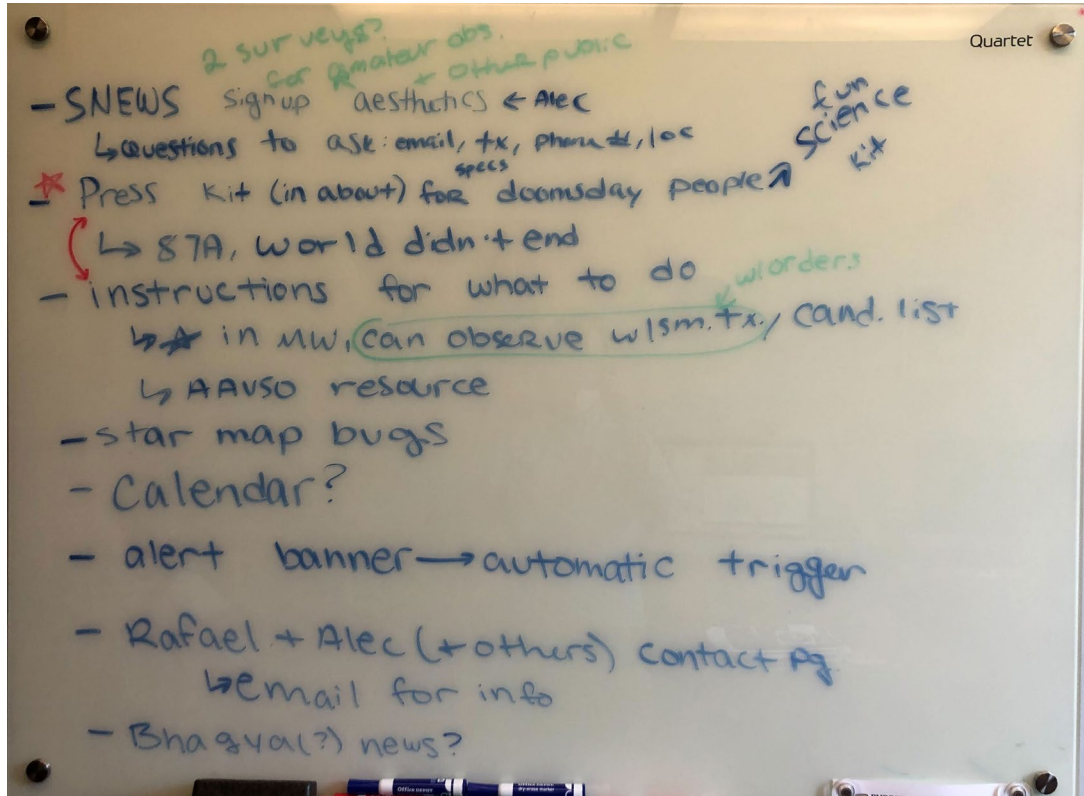 2 surveys?
for amateur obs.
+ other public
Quartet
- SNEWS signup aesthetics ← Alec
↳ questions to ask: email, tx, phone #, loc
specs
fun
science
kit
- Press Kit (in about) for doomsday people ↗
↳ 87A, world didn't end
- instructions for what to do
w/orders
↳ ★ in MW, can observe w/sm. tx., cand. list
↳ AAVSO resource
- star map bugs
- Calendar?
- alert banner → automatic trigger
- Rafael + Alec (+ others) contact pg
↳ email for info
- Bhagya(?) news?